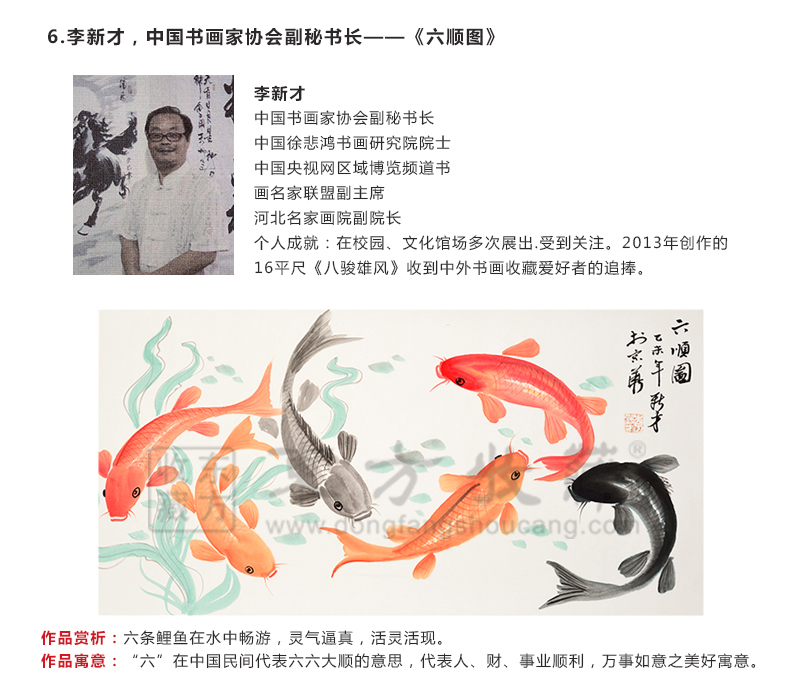 6.李新才，中国书画家协会副秘书长——《六顺图》
李新才
中国书画家协会副秘书长
中国徐悲鸿书画研究院院士
中国央视网区域博览频道书
画名家联盟副主席
河北名家画院副院长
个人成就：在校园、文化馆场多次展出.受到关注。2013年创作的
16平尺《八骏雄风》收到中外书画收藏爱好者的追捧。
六順圖
乙未年新才
於京華
东方收藏
东方收藏®
www.dongfangshoucang.com
作品赏析：六条鲤鱼在水中畅游，灵气逼真，活灵活现。
作品寓意：“六”在中国民间代表六六大顺的意思，代表人、财、事业顺利，万事如意之美好寓意。